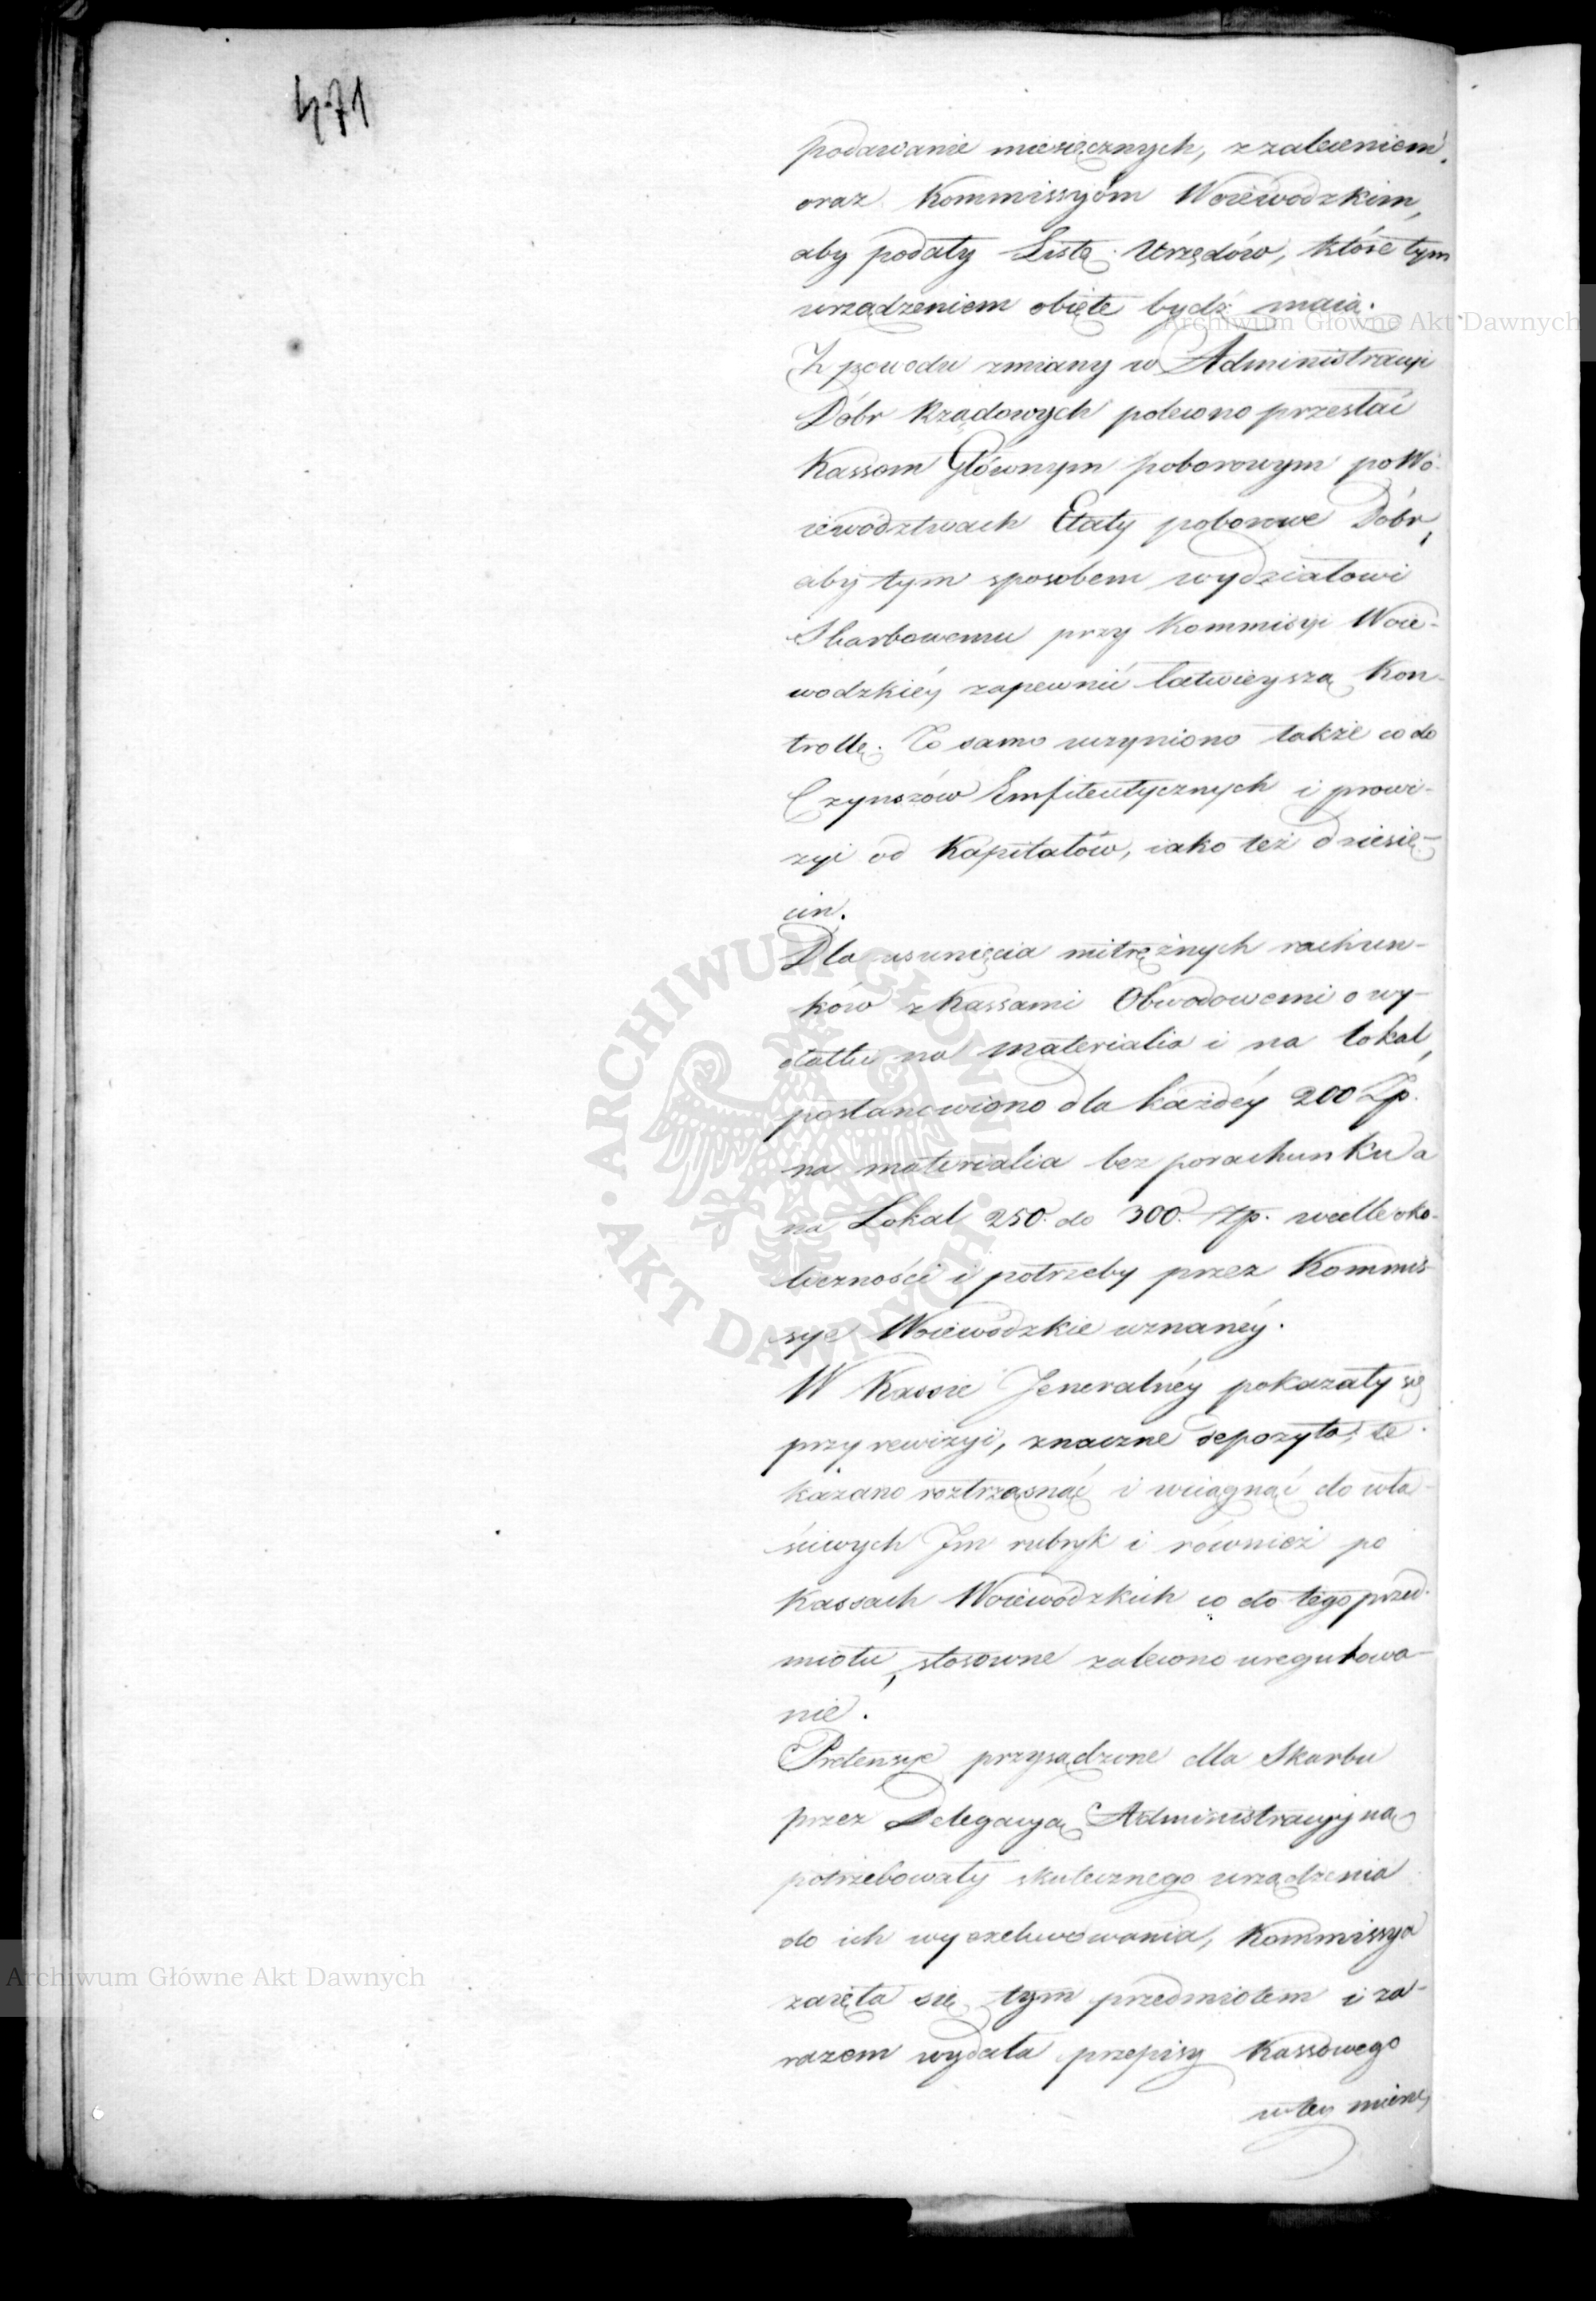 471
podawanie miesięcznych, z zaleceniem
oraz Kommissyóm Woiewódzkim,
aby podały Listę Urzędów, które tym
urządzeniem obięte bydź maią.
Z powodu zmiany w Administracyi
Dóbr Rządowych polecono przesłać
Kassom Głównym poborowym po Wo-
iewództwach Etaty poborowe Dóbr,
aby tym sposobem wydziałowi
Skarbowemu przy Kommissyi Woie-
wodzkiéy zapewnić łatwieyszą Kon-
trollę. To samo uczyniono także co do
Czynszów Emfiteutycznych i prowi-
zyi od Kapitałów, iako też dziesię-
cin.
Dla usunięcia mitrężnych rachun-
ków z Kassami Obwodowemi o wy-
datku na materialia i na lokal,
postanowiono dla każdéy 200 Zp.
na materialia bez porachunku a
na Lokal 250. do 300. Zp. wedle oko-
liczności i potrzeby przez Kommis-
sye Woiewódzkie uznanéy.
W Kassie Jeneralnéy pokazały się
przy rewizyi, znaczne depozyta, te
kazano roztrząsnąć i wciągnąć do wła-
ściwych Jm rubryk i również po
Kassach Woiewódzkich co do tego przed-
miotu, stosowne zalecono uregulowa-
nie.
Pretensye przysądzone dla Skarbu
przez Delegacyą Administracyyną
potrzebowały skutecznego urządzenia
do ich wyexekwowania, Kommissya
zaięła się tym przedmiotem i za-
razem wydała przepisy Kassowego
w tey mierze
Archiwum Główne Akt Dawnych
Archiwum Główne Akt Dawnych
ARCHIWUM GŁÓWNE AKT DAWNYCH